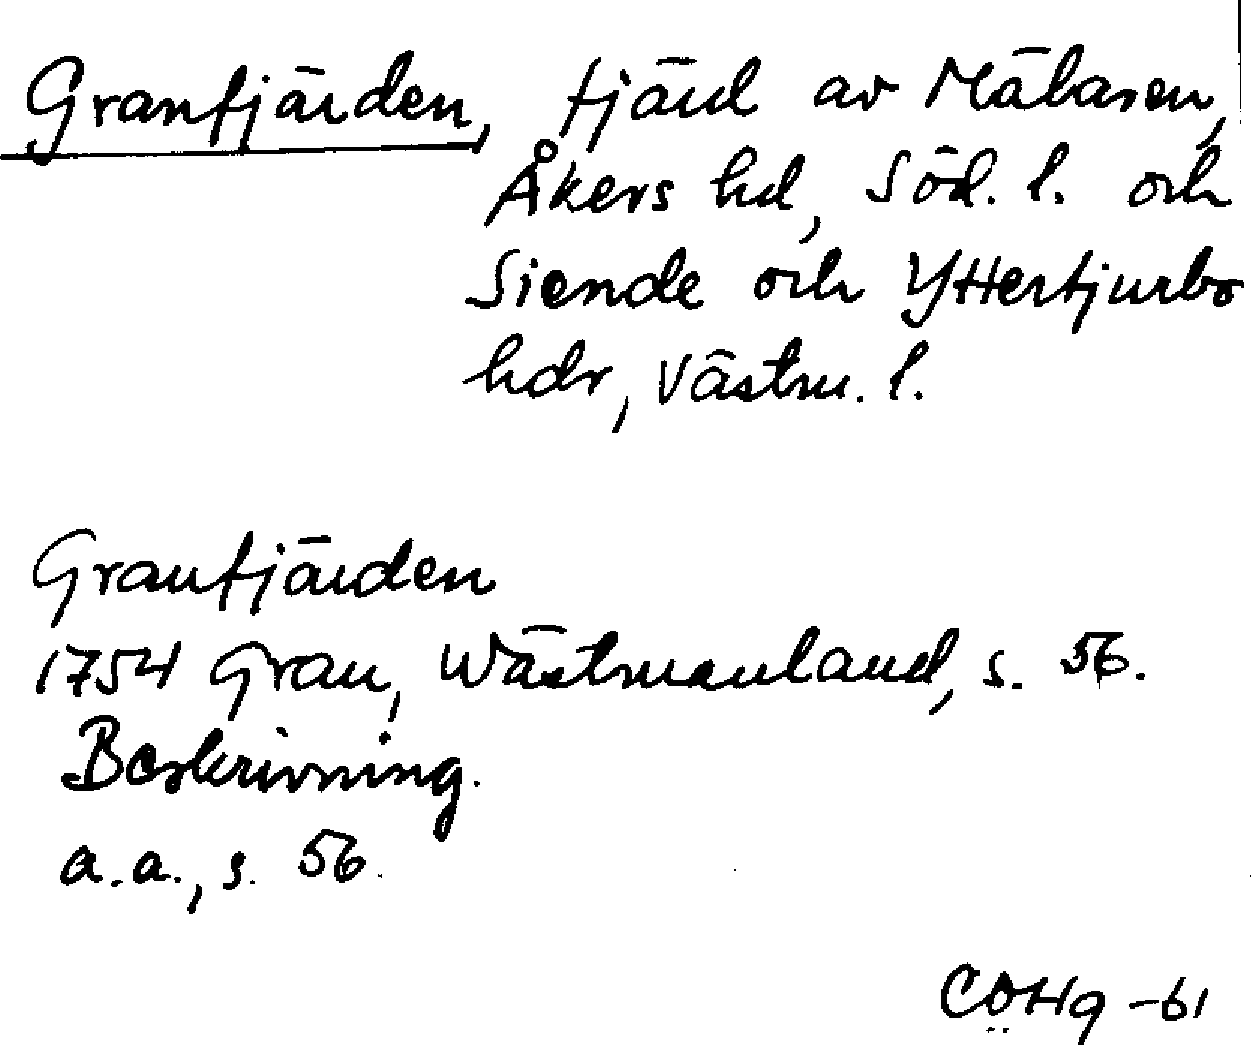 Granfjärden, fjärd av Mälaren,
Åkers hd, Söd. l. och
Siende och Yttertjurbo
hdr, Västm. l.
Granfjärden
1754 Grau, Wästmanland, s. 56.
Beskrivning.
a.a., s. 56.
CÖHg -61